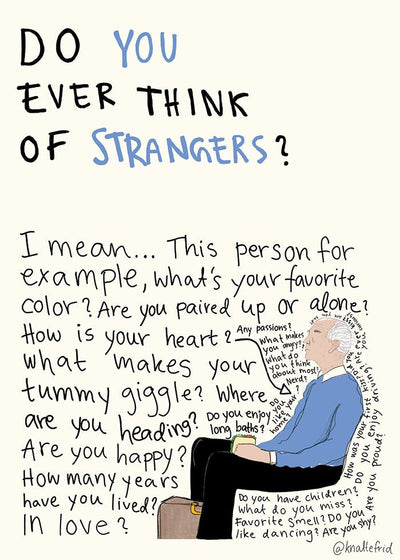 DO YOU
EVER THINK
OF STRANGERS?
I mean... This person for
example, what's your favorite
color? Are you paired up or alone?
How is your heart?
what makes your
tummy giggle? Where
are you heading?
Are you happy?
How many years
have you lived?
In love?
Any passions?
What makes
you angry?
What do
you think
about most?
Nerd?
Do
you
like your
home?
Do you enjoy
long baths?
How was your first
Do you enjoy driving?
Are you proud?
Do you have children?
what do you miss?
Favorite smell? Do you
like dancing? Are you shy?
@knallefrid